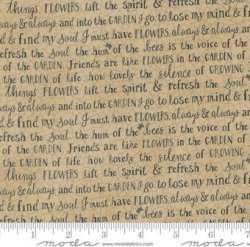 things FLOWERS lift the spirit & refresh the
always & always and into the GARDEN I go to lose my mind &
& find my Soul I must have FLOWERS always & always and
refresh the Soul the hum of the bees is the voice of the
the GARDEN. Friends are like FLOWERS in the GARDEN
of the GARDEN of life how lovely the silence of GROWING
things FLOWERS lift the Spirit & refresh the Soul
always & always and into the GARDEN I go to lose my mind & f
mind & find my Soul I must have FLOWERS always & always
& refresh the Soul the hum of the bees is the voice of the
of the GARDEN. Friends are like FLOWERS in the GARDEN
of the GARDEN of life how lovely the silence of GROWING
things FLOWERS lift the Spirit & refresh the Soul
always & always and into the GARDEN I go to lose my mind &
must of the bees is the voice of the
1 2 3 4 5 6
moda www.modafabrics.com moda